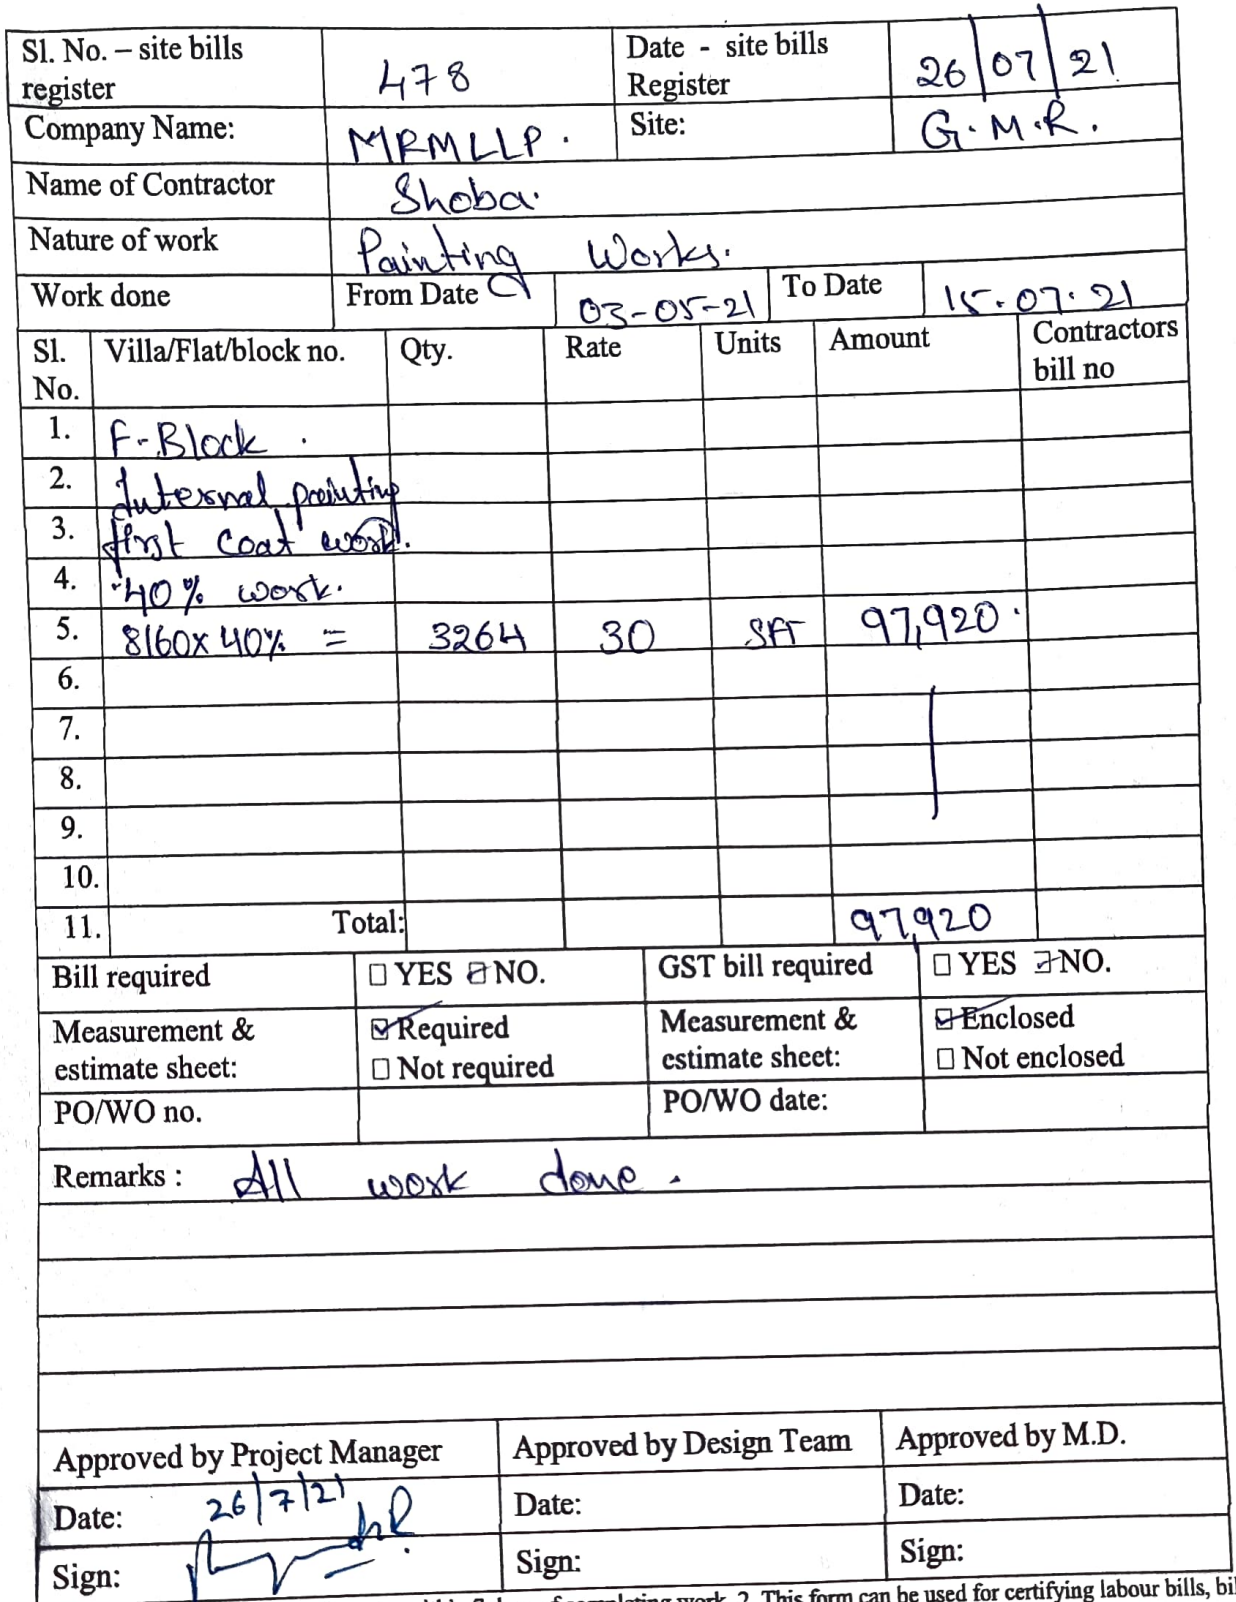 Sl. No. – site bills register 478 Date - site bills Register 26/07/21
Company Name: MRMLLP. Site: G.M.R.
Name of Contractor Shoba.
Nature of work Painting Works.
Work done From Date 03-05-21 To Date 15.07.21
Sl. No. Villa/Flat/block no. Qty. Rate Units Amount Contractors bill no
1. F-Block.
2. Internal painting
3. first coat work.
4. 40% work.
5. 8160x40% = 3264 30 SFT 97,920.
6.
7.
8.
9.
10.
11. Total: 97,920
Bill required ☐ YES ☑ NO. GST bill required ☐ YES ☑ NO.
Measurement & estimate sheet: ☑ Required ☐ Not required Measurement & estimate sheet: ☑ Enclosed ☐ Not enclosed
PO/WO no. PO/WO date:
Remarks : All work done.
Approved by Project Manager Approved by Design Team Approved by M.D.
Date: 26/7/21 Date: Date:
Sign: Sign: Sign:
work. 2. This form can be used for certifying labour bills,